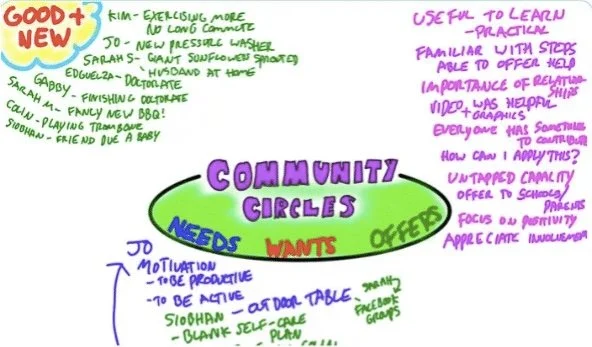 GOOD +
NEW
KIM - EXERCISING MORE
NO LONG COMMUTE
JO - NEW PRESSURE WASHER
SARAH S - GIANT SUNFLOWERS SPROUTED
HUSBAND AT HOME
EDGUELZA - DOCTORATE
GABBY - FINISHING DOCTORATE
SARAH M - FANCY NEW BBQ!
COLIN - PLAYING TROMBONE
SIOBHAN - FRIEND DUE A BABY
USEFUL TO LEARN
- PRACTICAL
FAMILIAR WITH STEPS
ABLE TO OFFER HELP
IMPORTANCE OF RELATION
SHIPS
VIDEO + WAS HELPFUL
GRAPHICS
EVERYONE HAS SOMETHING
TO CONTRIBUTE
HOW CAN I APPLY THIS?
UNTAPPED CAPACITY
OFFER TO SCHOOLS/
PARENTS
FOCUS ON POSITIVITY
APPRECIATE INVOLVEMEN
COMMUNITY
CIRCLES
NEEDS WANTS OFFERS
JO
MOTIVATION
- TO BE PRODUCTIVE
- TO BE ACTIVE
SIOBHAN - OUTDOOR TABLE
SARAH
FACEBOOK
GROUPS
- BLANK SELF-CARE
PLAN